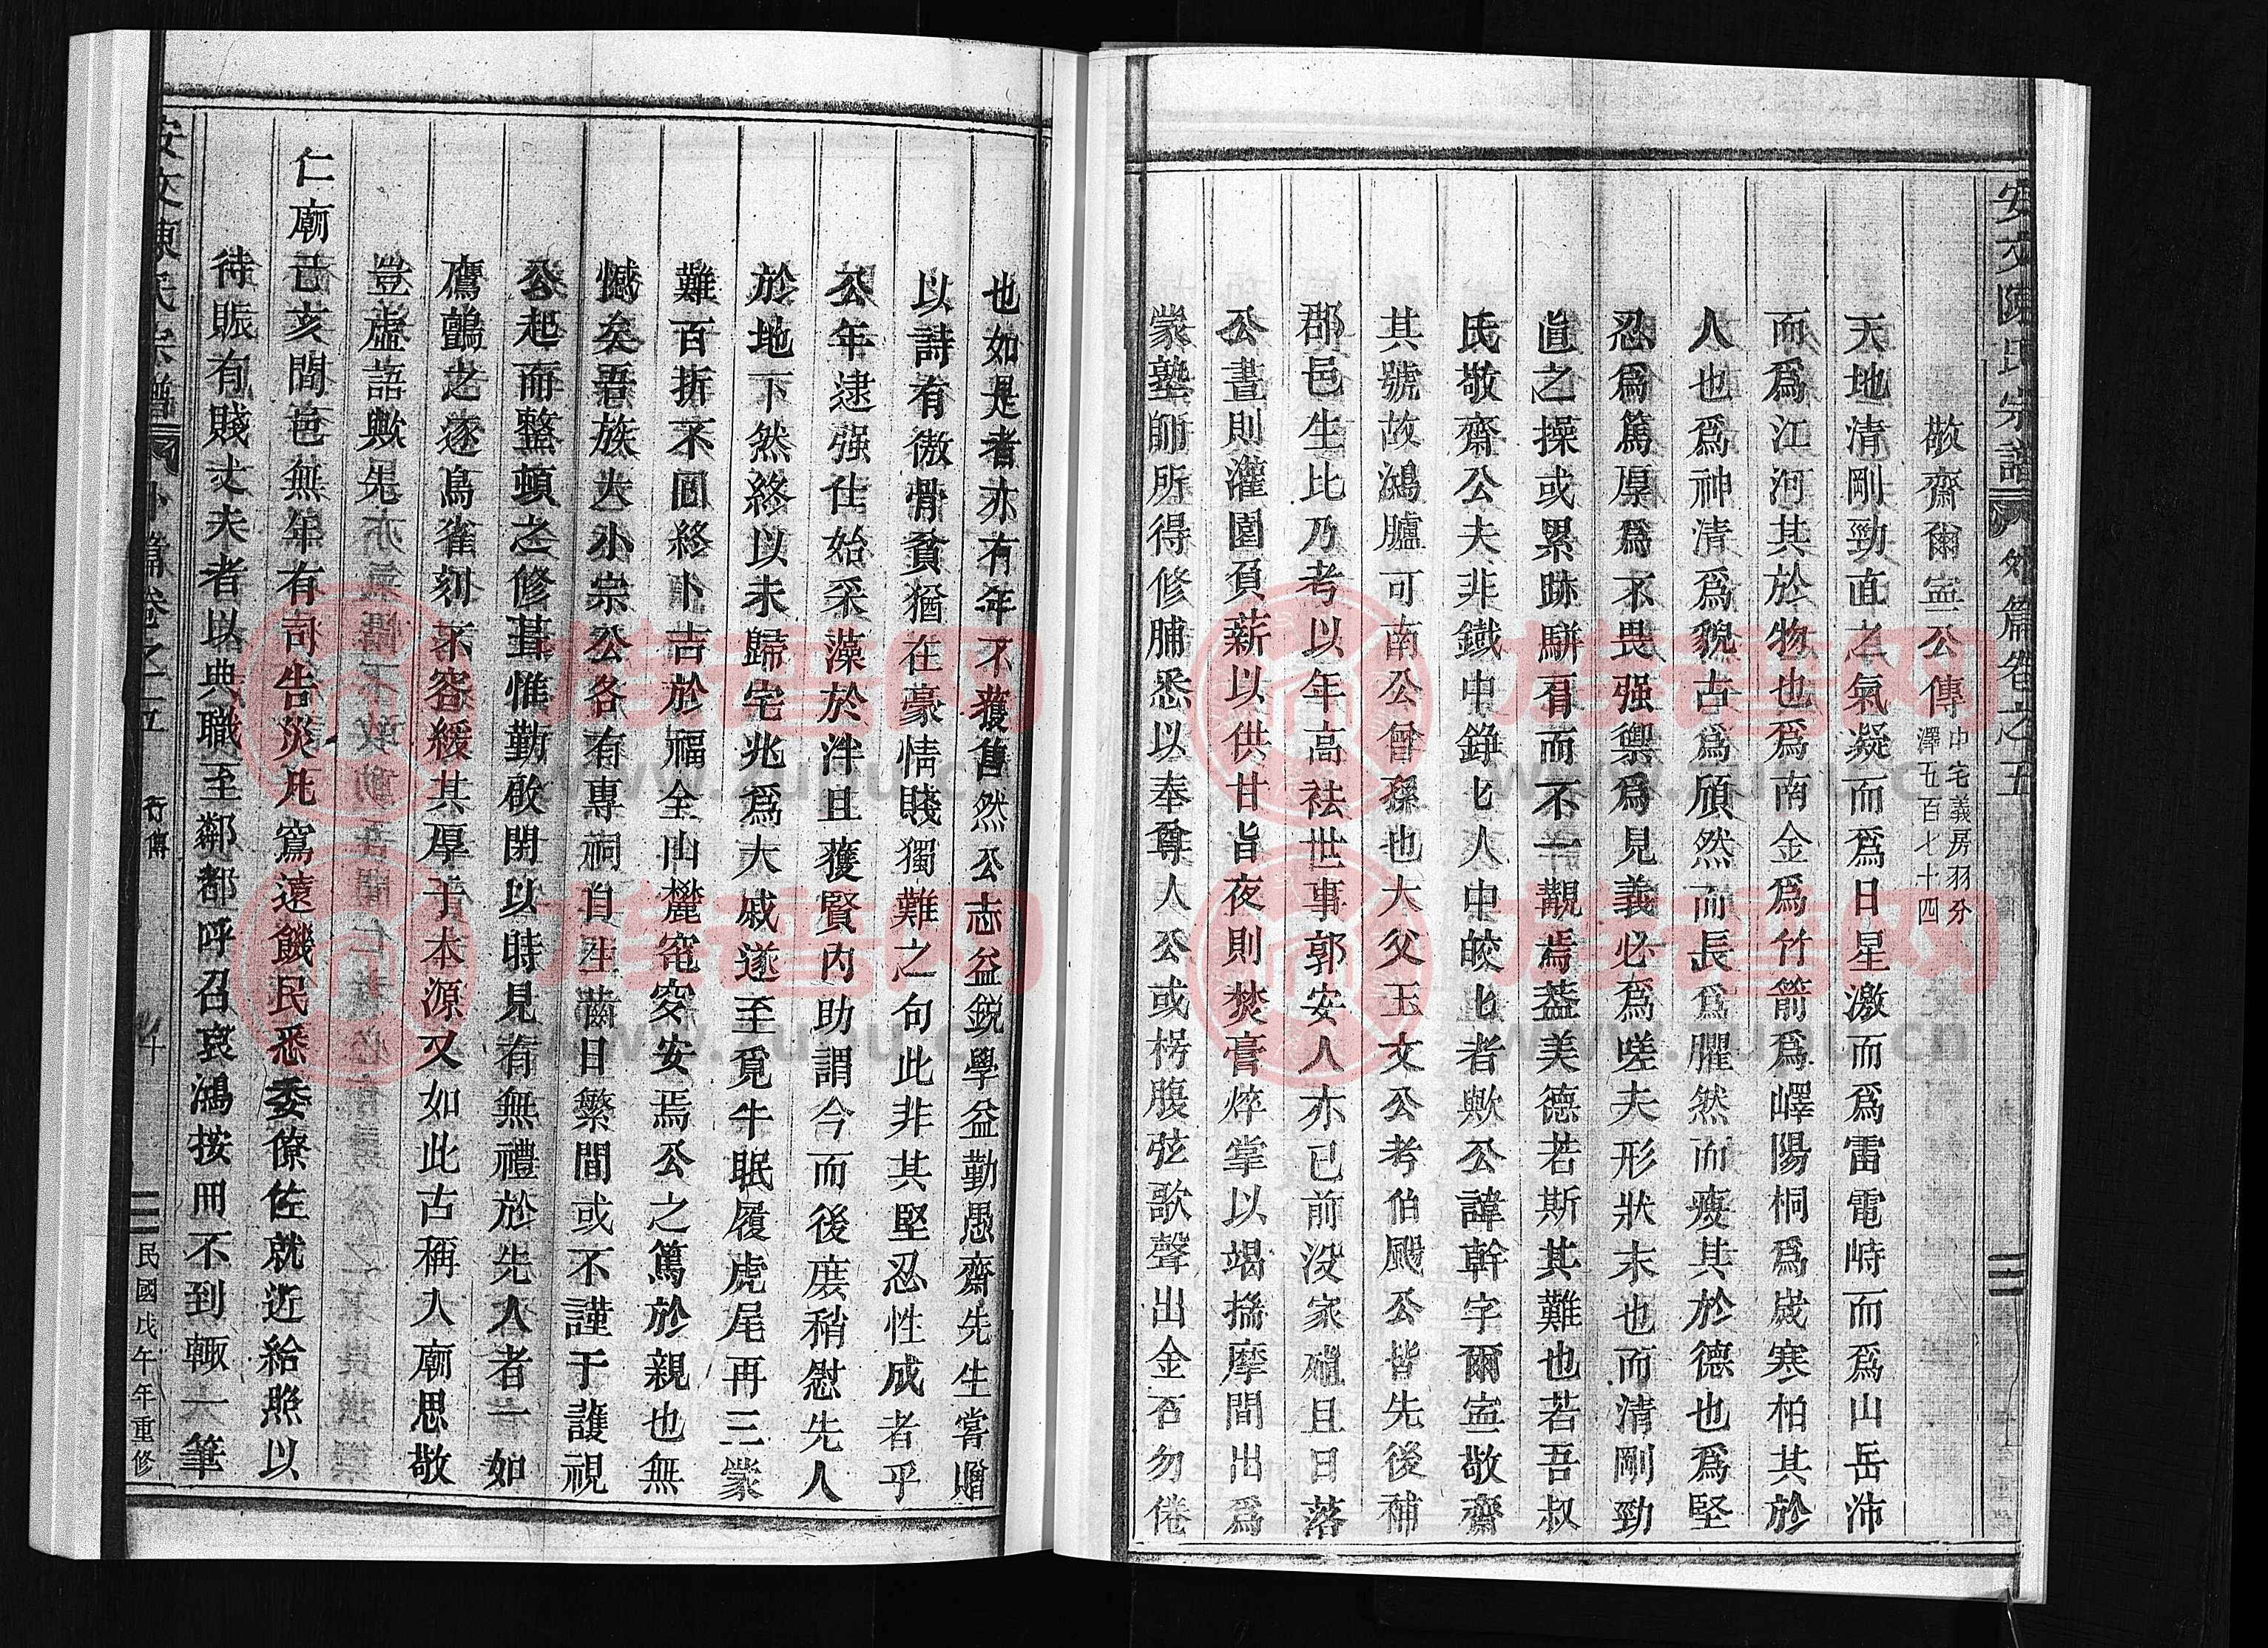 安文陳氏宗譜 外篇卷之五
敬齋爾寍公傳 中宅義房羽分 澤五百七十四
天地清剛勁直之氣凝而爲日星激而爲雷電峙而爲山岳沛
而爲江河其於物也爲南金爲竹箭爲嶧陽桐爲嵗寒柏其於
人也爲神清爲貌古爲頎然而長爲臞然而㾪其於德也爲堅
忍爲篤厚爲不畏强禦爲見義必爲嗟夫形狀末也而清剛勁
直之操或累跡駢有而不一覯焉葢美德若斯其難也若吾叔
氏敬齋公夫非鐵中錚匕人中皎匕者歟公諱幹字爾寍敬齋
其號故鴻臚可南公曾孫也大父玉文公考伯颺公皆先後補
郡邑生比乃考以年高袪世事郭安人亦已前沒家磪且日落
公晝則灌園負薪以供甘旨夜則焚膏焠掌以竭揣摩間出爲
蒙塾師所得修脯悉以奉尊人公或枵腹弦歌聲出金石勿倦
也如是者亦有年不獲售然公志益銳學益勤愚齋先生嘗贈
以詩有傲骨貧猶在豪情賤獨難之句此非其堅忍性成者乎
公年逮强仕始采藻於泮且獲賢內助謂今而後庻稍慰先人
於地下然終以未歸宅兆爲大戚遂至覓牛眠履虎尾再三蒙
難百折不囬終卜吉於福全山麓窀穸安焉公之篤於親也無
憾矣吾族大小宗公各有專祠自生齒日繁間或不謹于護視
公起而整頓之修葺惟勤啟閉以時見有無禮於先人者一如
鷹鸇之逐鳥雀刻不容緩其厚于本源又如此古稱入廟思敬
豈虛語歟先
仁廟己亥間邑無年有司告災凡窵遠饑民悉委僚佐就近給照以
待賑有賤丈夫者以典職至鄰都呼召哀鴻按冊不到輒一筆
安文陳氏宗譜 外篇卷之五 行傳 民國戊午年重修
族譜网
www.zupu.cn
族譜网
www.zupu.cn
族譜网
www.zupu.cn
族譜网
www.zupu.cn